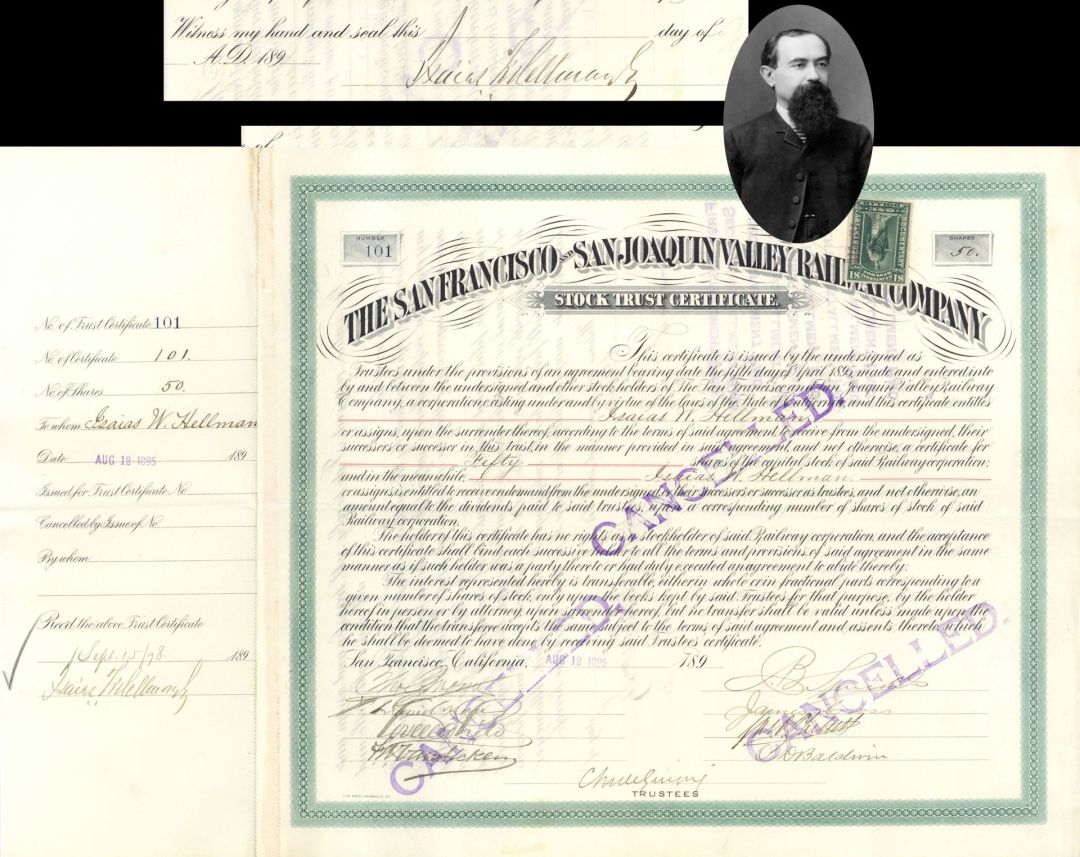 Witness my hand and seal this day of
A.D. 189
Isaias W. Hellman Jr
of
No. of Trust Certificate 101
No. of Certificate 101.
No. of shares 50.
To whom Isaias W. Hellman
Date AUG 12 1895 189
Issued for Trust Certificate No
Cancelled by Issue of No
By whom
Rec'd the above Trust Certificate
Sept. 15/98 189
Isaias W. Hellman Jr
NUMBER
101
SHARES
50.
DOCUMENTARY
$1
THE SAN FRANCISCO AND SAN JOAQUIN VALLEY RAILWAY COMPANY
STOCK TRUST CERTIFICATE.
This certificate is issued by the undersigned as
Trustees under the provisions of an agreement bearing date the fifth day of April 1895, made and entered into
by and between the undersigned and other stockholders of The San Francisco and San Joaquin Valley Railway
Company, a corporation existing under and by virtue of the laws of the State of California, and this certificate entitles
Isaias W. Hellman
or assigns, upon the surrender thereof, according to the terms of said agreement, to receive from the undersigned, their
successors or successor in this trust, in the manner provided in said agreement, and not otherwise, a certificate for
Fifty shares of the capital stock of said Railway corporation;
and in the meanwhile, Isaias W. Hellman
or assigns is entitled to receive on demand from the undersigned, their successors or successor as trustees, and not otherwise, an
amount equal to the dividends paid to said trustees, upon a corresponding number of shares of stock of said
Railway corporation.
The holder of this certificate has no rights as a stockholder of said Railway corporation, and the acceptance
of this certificate shall bind each successive holder to all the terms and provisions of said agreement in the same
manner as if such holder was a party thereto or had duly executed an agreement to abide thereby.
The interest represented hereby is transferable, either in whole or in fractional parts corresponding to a
given number of shares of stock, only upon the books kept by said Trustees for that purpose, by the holder
hereof in person or by attorney, upon surrender hereof, but no transfer shall be valid unless made upon the
condition that the transferee accepts the same, subject to the terms of said agreement and assents thereto, which
he shall be deemed to have done by receiving said Trustees' certificate.
San Francisco, California, AUG 12 1895 189
CANCELLED.
CANCELLED.
CANCELLED.
O D Baldwin
TRUSTEES